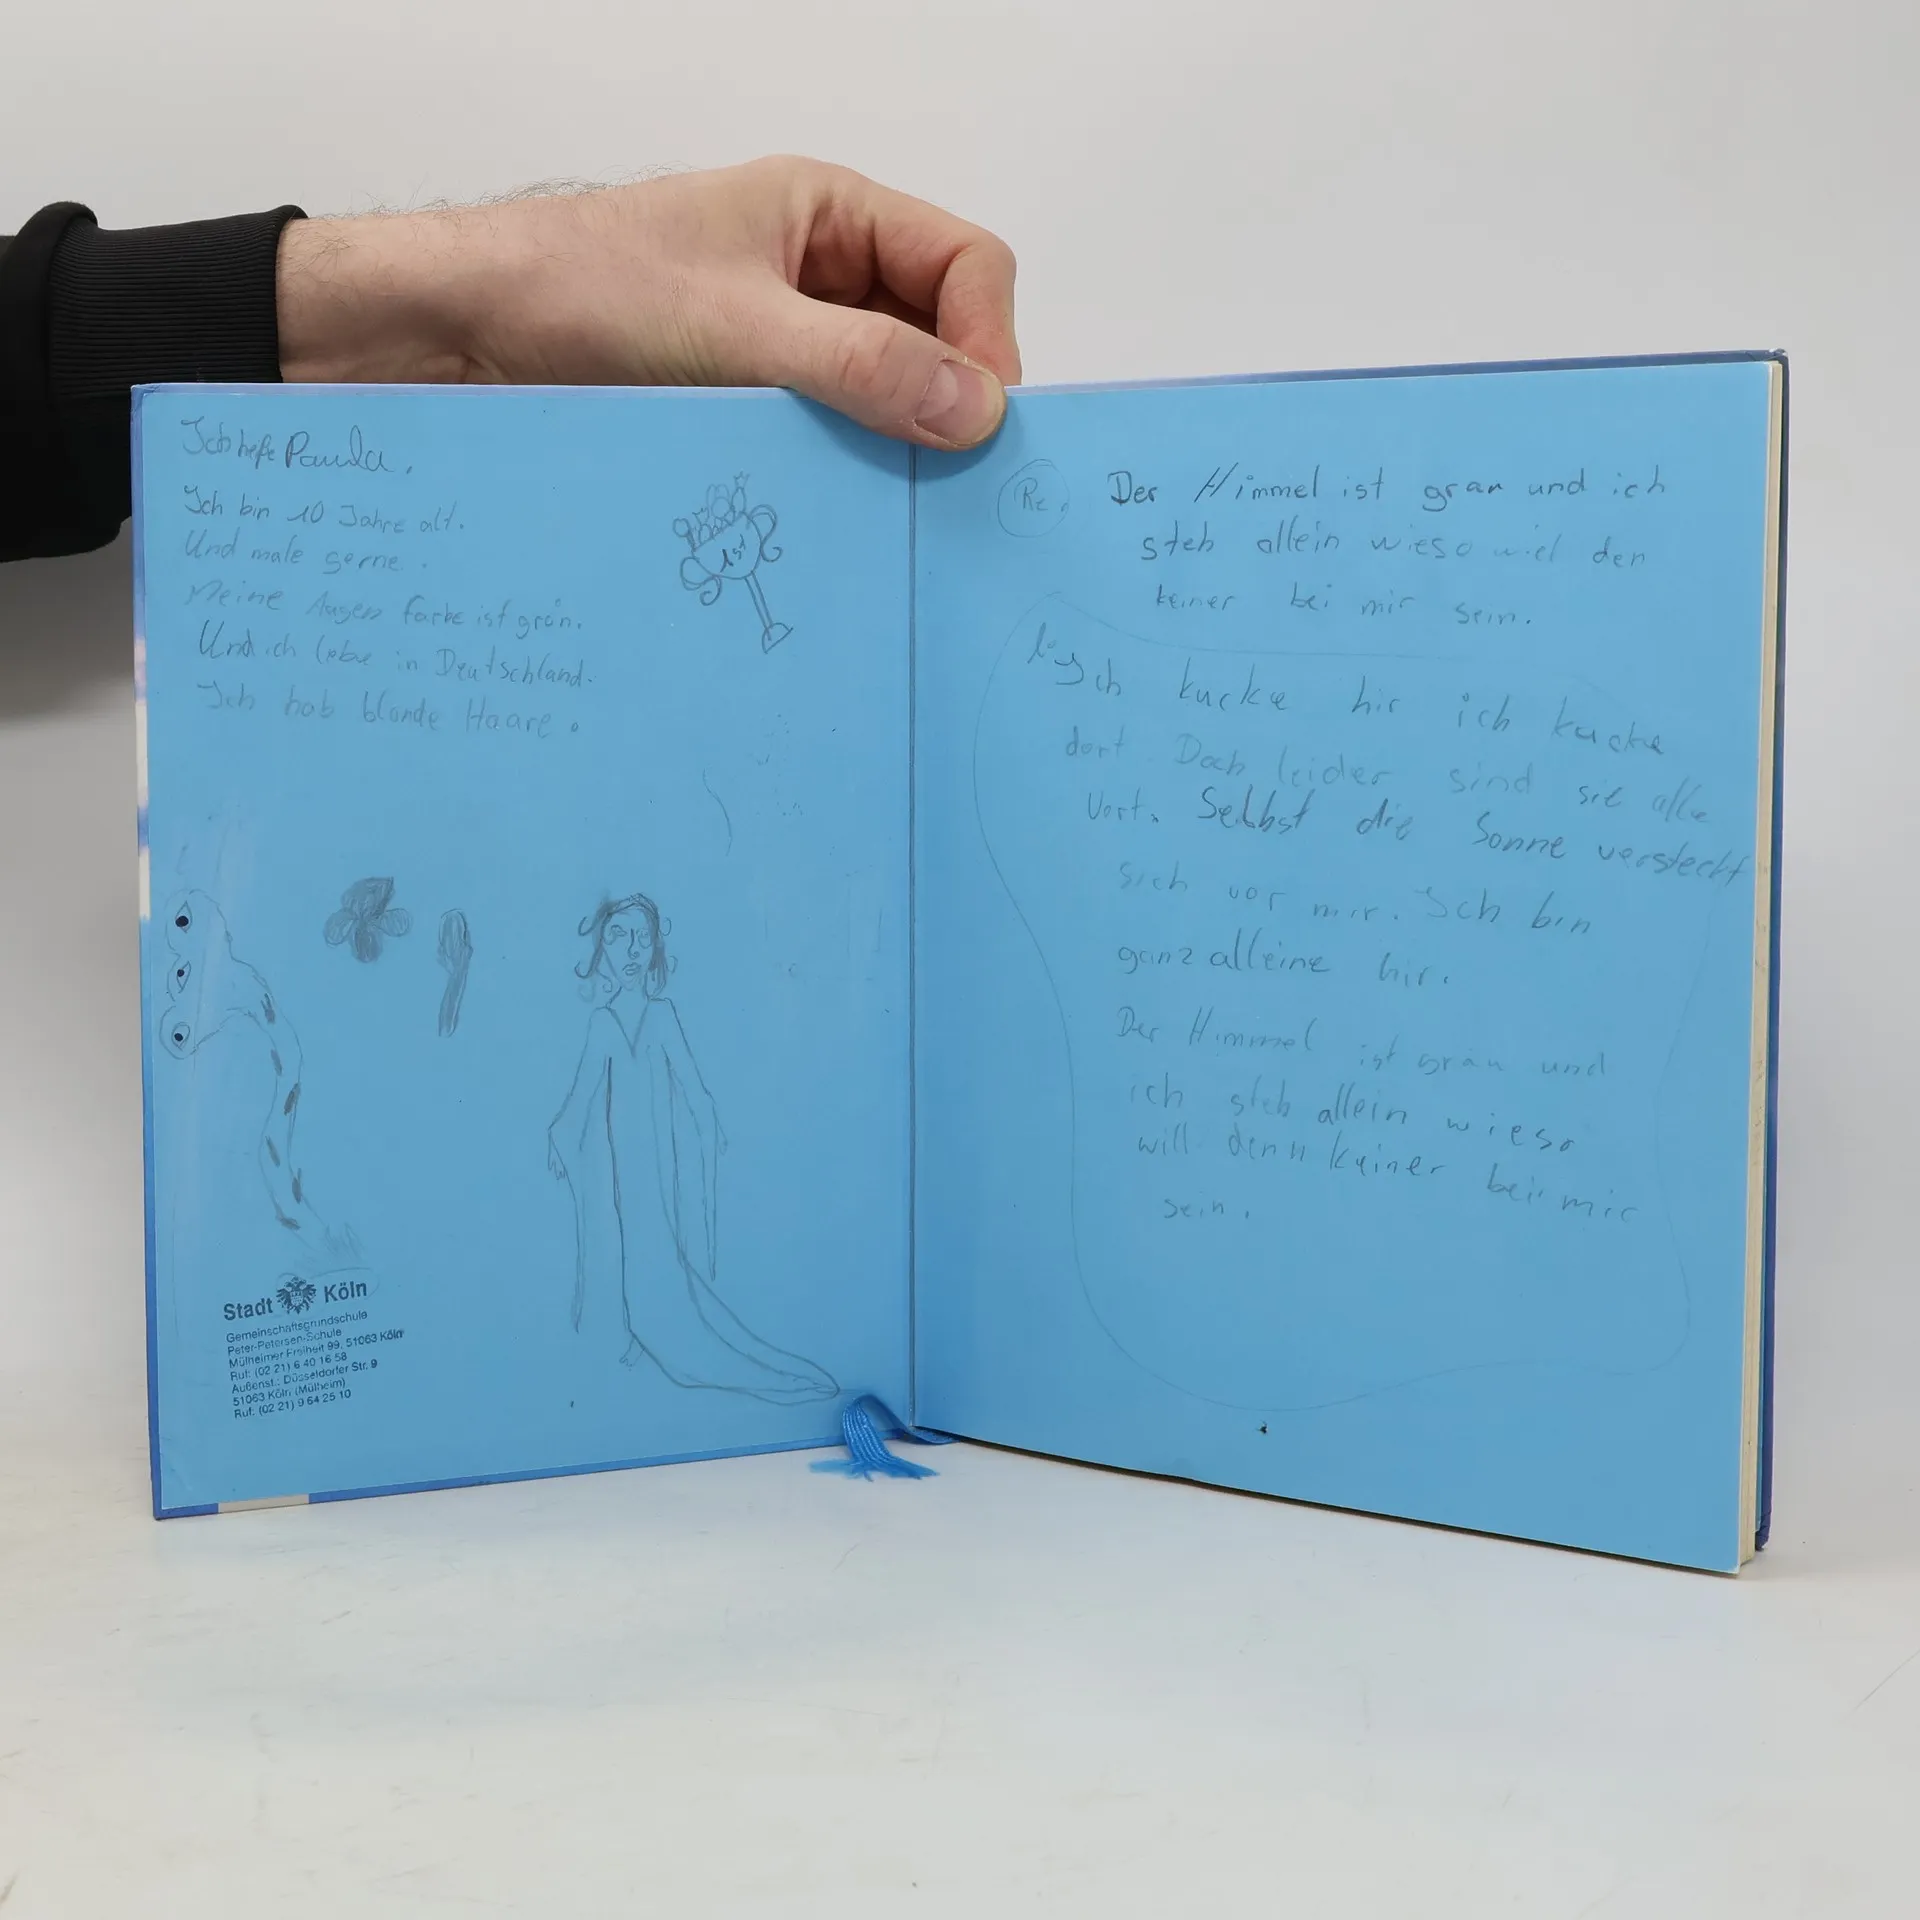 Ich heße Paula.
Ich bin 10 Jahre alt.
Und male gerne.
Meine Augen farbe ist grün.
Und ich lebe in Deutschland.
Ich hab blonde Haare.
1st
Stadt Köln
Gemeinschaftsgrundschule
Peter-Petersen-Schule
Mülheimer Freiheit 99, 51063 Köln
Ruf: (02 21) 6 40 16 58
Außenst.: Düsseldorfer Str. 9
51063 Köln (Mülheim)
Ruf: (02 21) 9 64 25 10
Re. Der Himmel ist grau und ich
steh allein wieso wiel den
keiner bei mir sein.
1. Ich kucke hir ich kucke
dort. Doch leider sind sie alle
Vort. Selbst die Sonne versteckt
sich vor mir. Ich bin
ganz alleine hir.
Der Himmel ist grau und
ich steh allein wieso
will denn keiner bei mir
sein.